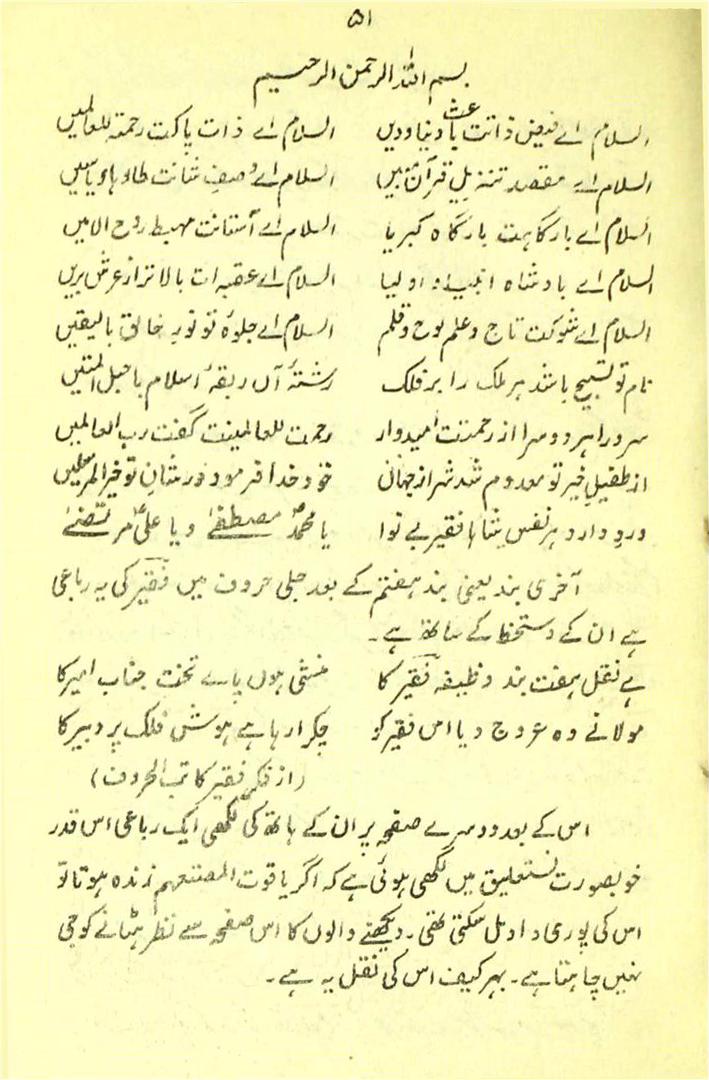 ۵۱
بسم اللہ الرحمن الرحیم
السلام اے فیض ذاتت باعث دنیا و دیں السلام اے ذات پاکت رحمتہ للعالمیں
السلام اے مقصد تنزیل قرآن مبیں السلام اے وصف شانت طاہا و یاسیں
السلام اے بارگاہت بارگاہ کبریا السلام اے آستانت مہبط روح الامیں
السلام اے بادشاہ انبیاء و اولیا السلام اے عقبہ ات بالاتر از عرش بریں
السلام اے شوکت تاج و علم لوح و قلم السلام اے جلوۂ تو نور خالق بالیقیں
نام تو تسبیح باشد ہر ملک را بر فلک رشتۂ آں ربقۂ اسلام با حبل المتیں
سرورا ہر دوسرا از رحمتت امیدوار رحمت للعالمینت گفت رب العالمیں
از طفیل خیر تو معدوم شد شر از جہاں خود خدا فرمود در شان تو خیر المرسلیں
ورد دارد ہر نفس شاہا فقیر بے نوا یا محمدؐ مصطفےٰ و یا علیؑ مرتضےٰ
آخری بند یعنی بند ہفتم کے بعد جلی حروف میں فقیر کی یہ رباعی
ہے ان کے دستخط کے ساتھ ہے۔
ہے نقل ہفت بند وظیفہ فقیر کا منشی ہوں پاے تخت جناب امیر کا
مولا نے وہ عروج دیا اس فقیر کو چکرا رہا ہے ہوش فلک پر دبیر کا
(از فکر فقیر کاتب الحروف)
اس کے بعد دوسرے صفحہ پر ان کے ہاتھ کی لکھی ایک رباعی اس قدر
خوبصورت نستعلیق میں لکھی ہوئی ہے کہ اگر یاقوت المستعصم زندہ ہوتا تو
اس کی پوری داد مل سکتی تھی۔ دیکھنے والوں کا اس صفحہ سے نظر ہٹانے کو جی
نہیں چاہتا ہے۔ بہر کیف اس کی نقل یہ ہے۔